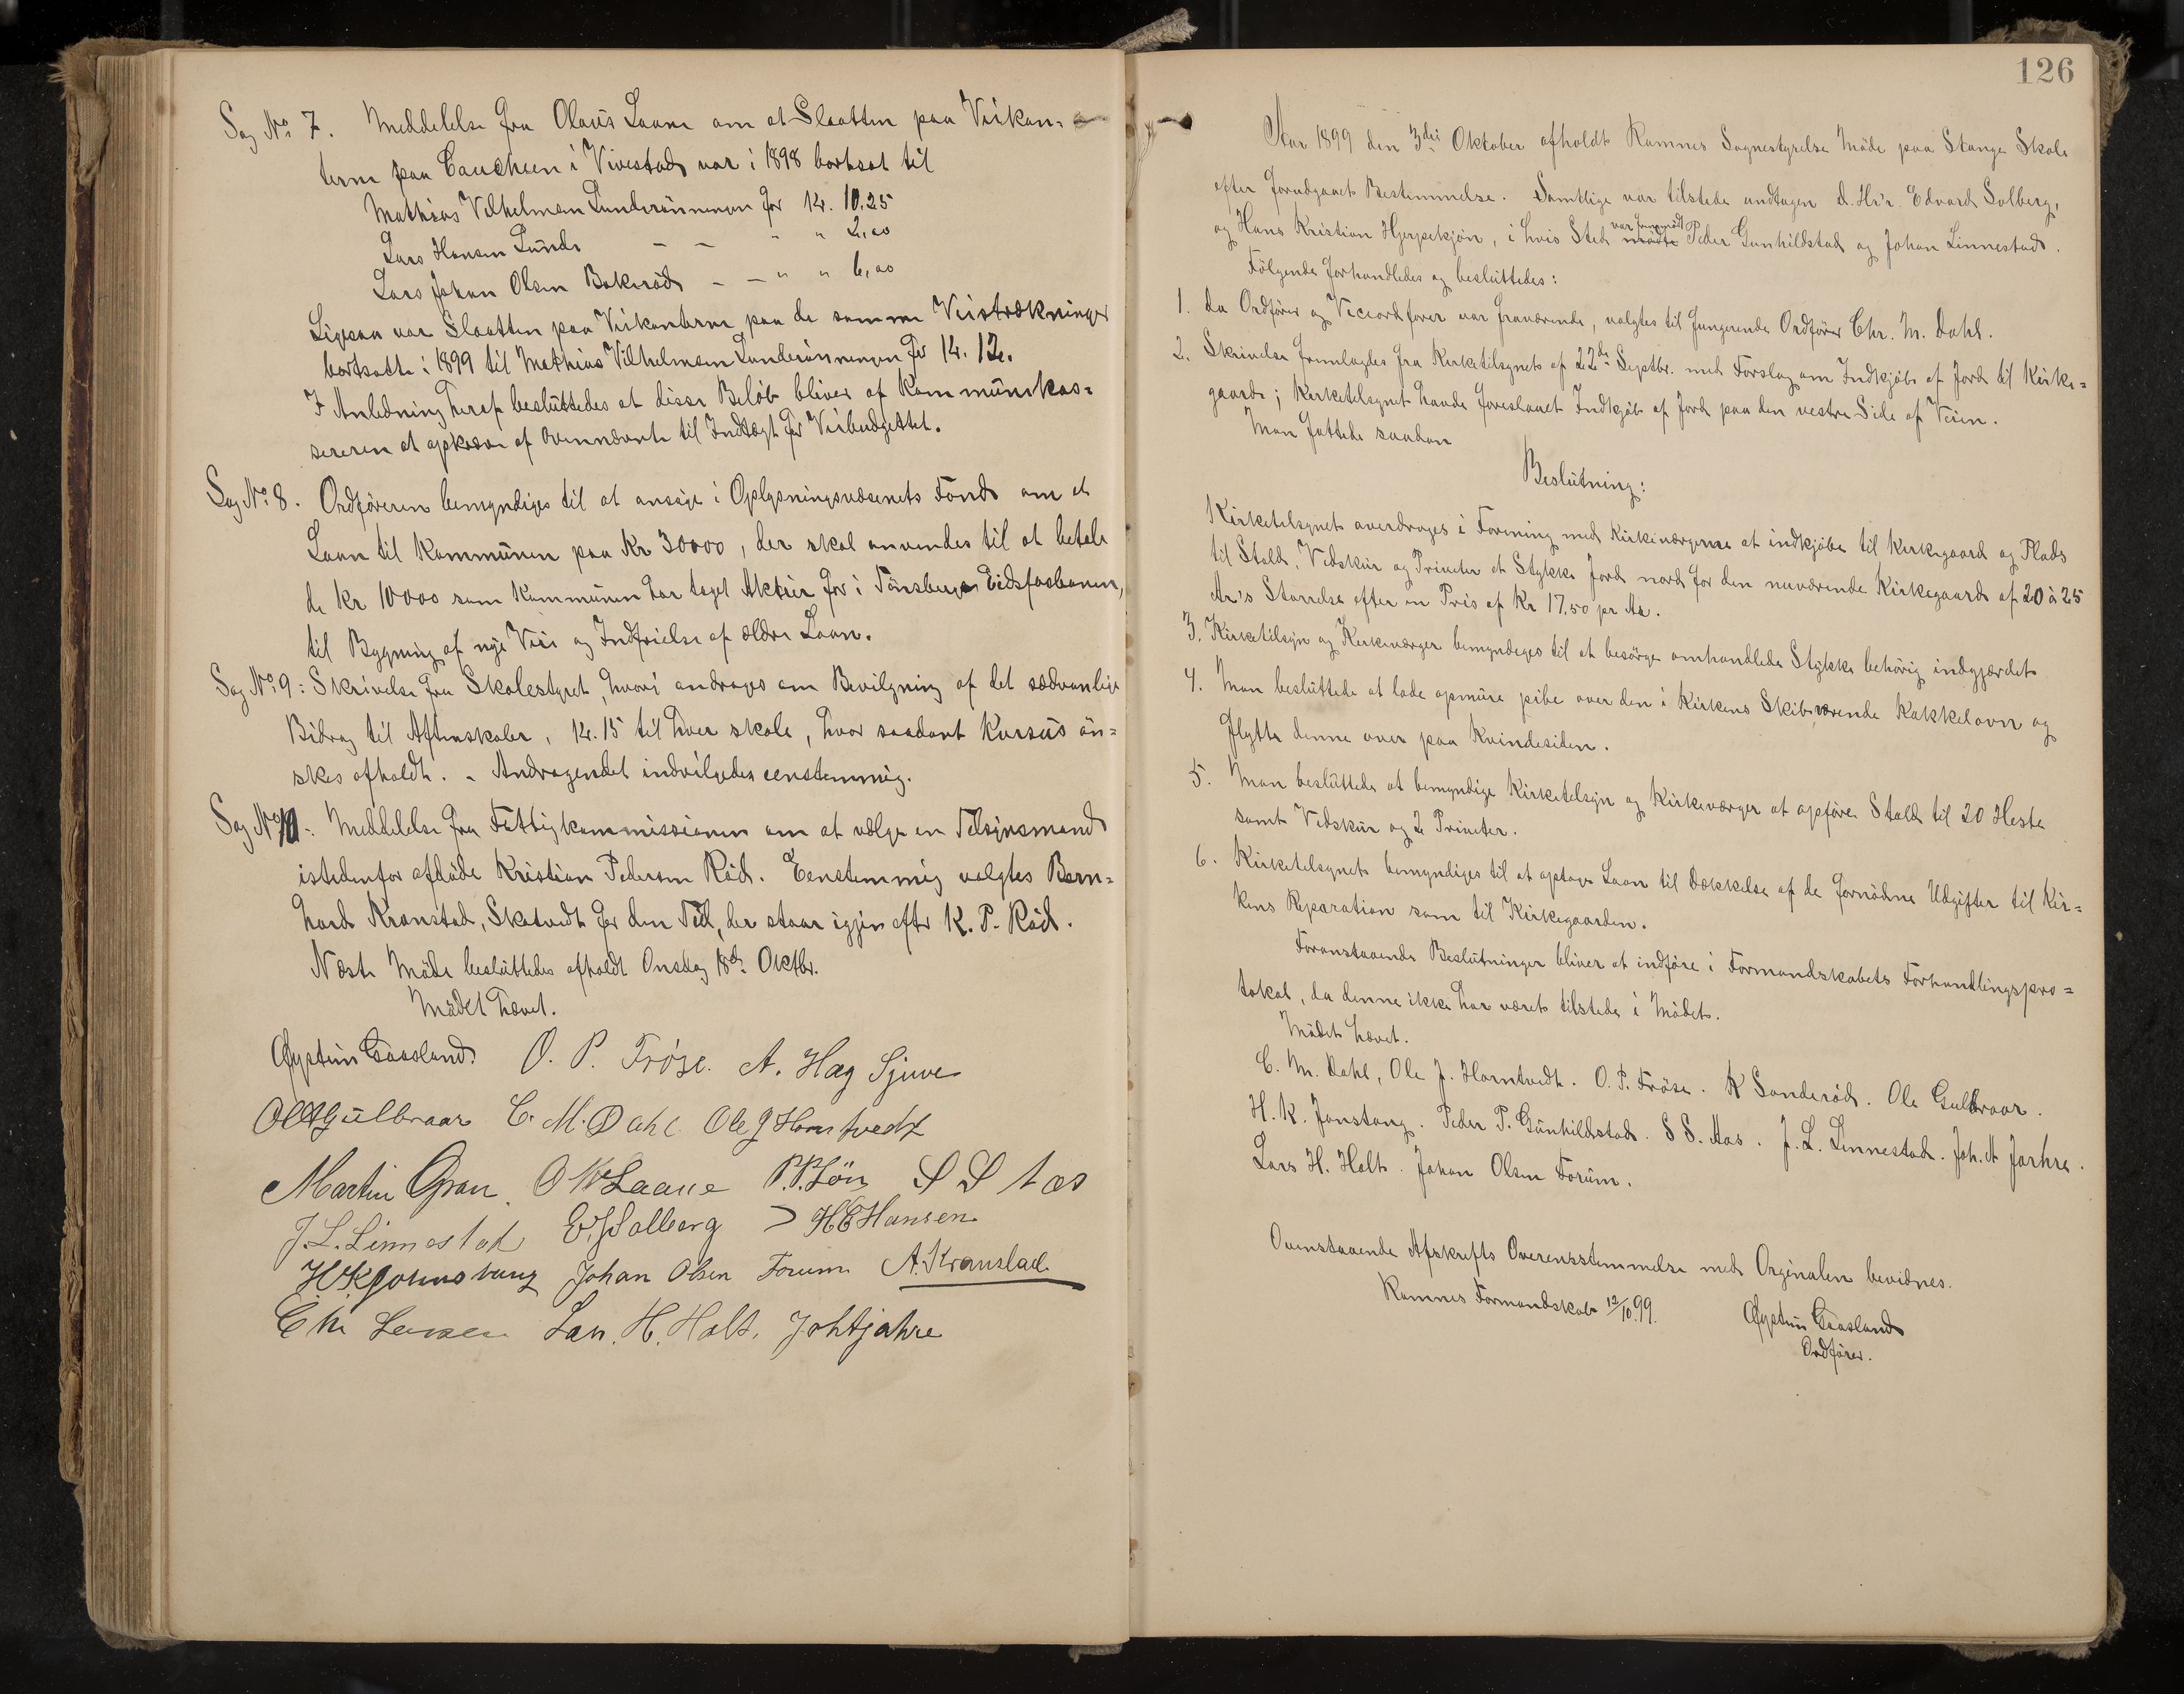 Sag No 7. Meddelelse fra Olaus Laane om at Slaatten paa Veikan-
terne paa Chauseen i Vivestad var i 1898 bortsat til
Mathias Vilhelmsen Lunderönningen for Kr. 10.25
Lars Hansen Lunde — — " " 2,00
Lars Johan Olsen Bakeröd — — " " 6,00
Ligesaa var Slaatten paa Veikanterne paa de samme Veistrækninger
bortsatte i 1899 til Mathias Vilhelmsen Lunderönningen for Kr. 12.
I Anledning heraf besluttedes at disse Beløb bliver af Kommunekas=
sereren at opkræve af Ovennævnte til Indtægt for Veibudgettet.
Sag No 8. Ordföreren bemyndiges til at ansöge i Oplysningsvæsenets Fond om et
Laan til Kommunen paa Kr 30000, der skal anvendes til at betale
de Kr 10000 som Kommunen har taget Aktier for i Tönsberg Eidsfosbanen,
til Bygning af nye Veie og Indfrielse af ældre Laan.
Sag No 9: Skrivelse fra Skolestyret, hvori andrages om Bevilgning af det sædvanlige
Bidrag til Aftenskoler, Kr. 15 til hver skole, hvor saadant Kursus ön=
skes afholdt. - Andragendet indvilgedes eenstemmig.
Sag No 10: Meddelelse fra Fattigkommissionen om at vælge en Tilsynsmand
istedenfor afdöde Kristian Pedersen Röd. Eenstemmig valgtes Bern=
hard Kranstad, Skatvedt for den Tid, der staar igjen efter K. P. Röd.
Næste Möde besluttedes afholdt Onsdag 18de Oktbr.
Mödet hævet.
Øystein Gaasland. O. P. Fröse. A. Hag Sjuve
Ole Gulbraar C. M. Dahl Ole J Horntvedt
Martin Gran. O M Laane P.P. Lön S S Aas
J. L. Linnestad E. Solberg H E Hansen
H. K. Johnstang Johan Olsen Forum A. Kranstad
Chr Lars. H. Holt. Joh A Jahre
126
Aar 1899 den 3die Oktober afholdt Ramnes Sognestyrelse Möde paa Stange Skole
efter forudgaaet Bestemmelse. Samtlige var tilstede undtagen d. Hr'r. Edvard Solberg,
og Hans Kristian Hjerpekjön, i hvis Sted mödte var fremmödt Peder Gunhildstad og Johan Linnestad.
Fölgende forhandledes og besluttedes:
1. Da Ordförer og Viceordforer var fraværende, valgtes til fungerende Ordförer Chr. M. Dahl.
2. Skrivelse fremlagdes fra Kirketilsynet af 22de Septbr. med Forslag om Indkjöb af Jord til Kirke=
gaard; Kirketilsynet havde foreslaaet Indkjöb af Jord paa den vestre Side af Veien.
Man fattede saadan
Beslutning:
Kirketilsynet overdrages i Forening med Kirkeværgerne at indkjöbe til Kirkegaard og Plads
til Stald, Vedskur og Priveter et Stykke Jord nord for den nuværende Kirkegaard af 20 à 25
Ar's Störrelse efter en Pris af Kr 17,50 pr Ar.
3. Kirketilsyn og Kirkeværger bemyndiges til at besörge omhandlede Stykke behörig indgjærdet
4. Man besluttede at lade opmure pibe over den i Kirkens Skib værende Kakkelovn og
flytte denne over paa Kvindesiden.
5. Man besluttede at bemyndige Kirketilsyn og Kirkeværger at opföre Stald til 20 Heste
samt Vedskur og 2 Priveter.
6. Kirketilsynet bemyndiges til at optage Laan til Dækkelse af de fornödne Udgifter til Kir=
kens Reparation som til Kirkegaarden.
Foranstaaende Beslutninger bliver at indföre i Formandskabets Forhandlingspro=
tokol, da denne ikke har været tilstede i Mödet.
Mödet hævet.
C. M. Dahl, Ole J. Horntvedt. O. P. Fröse. K Sanderöd. Ole Gulbraar.
H. K. Jonstang. Peder P. Gunhildstad. S S. Aas. J. L. Linnestad. Joh. A Jarhre.
Lars H. Holt. Johan Olsen Forum.
Ovenstaaende Afskrifts Overensstemmelse med Orginalen bevidnes.
Ramnes Formandskab 12/10 99.
Øystein Gaasland
Ordförer.